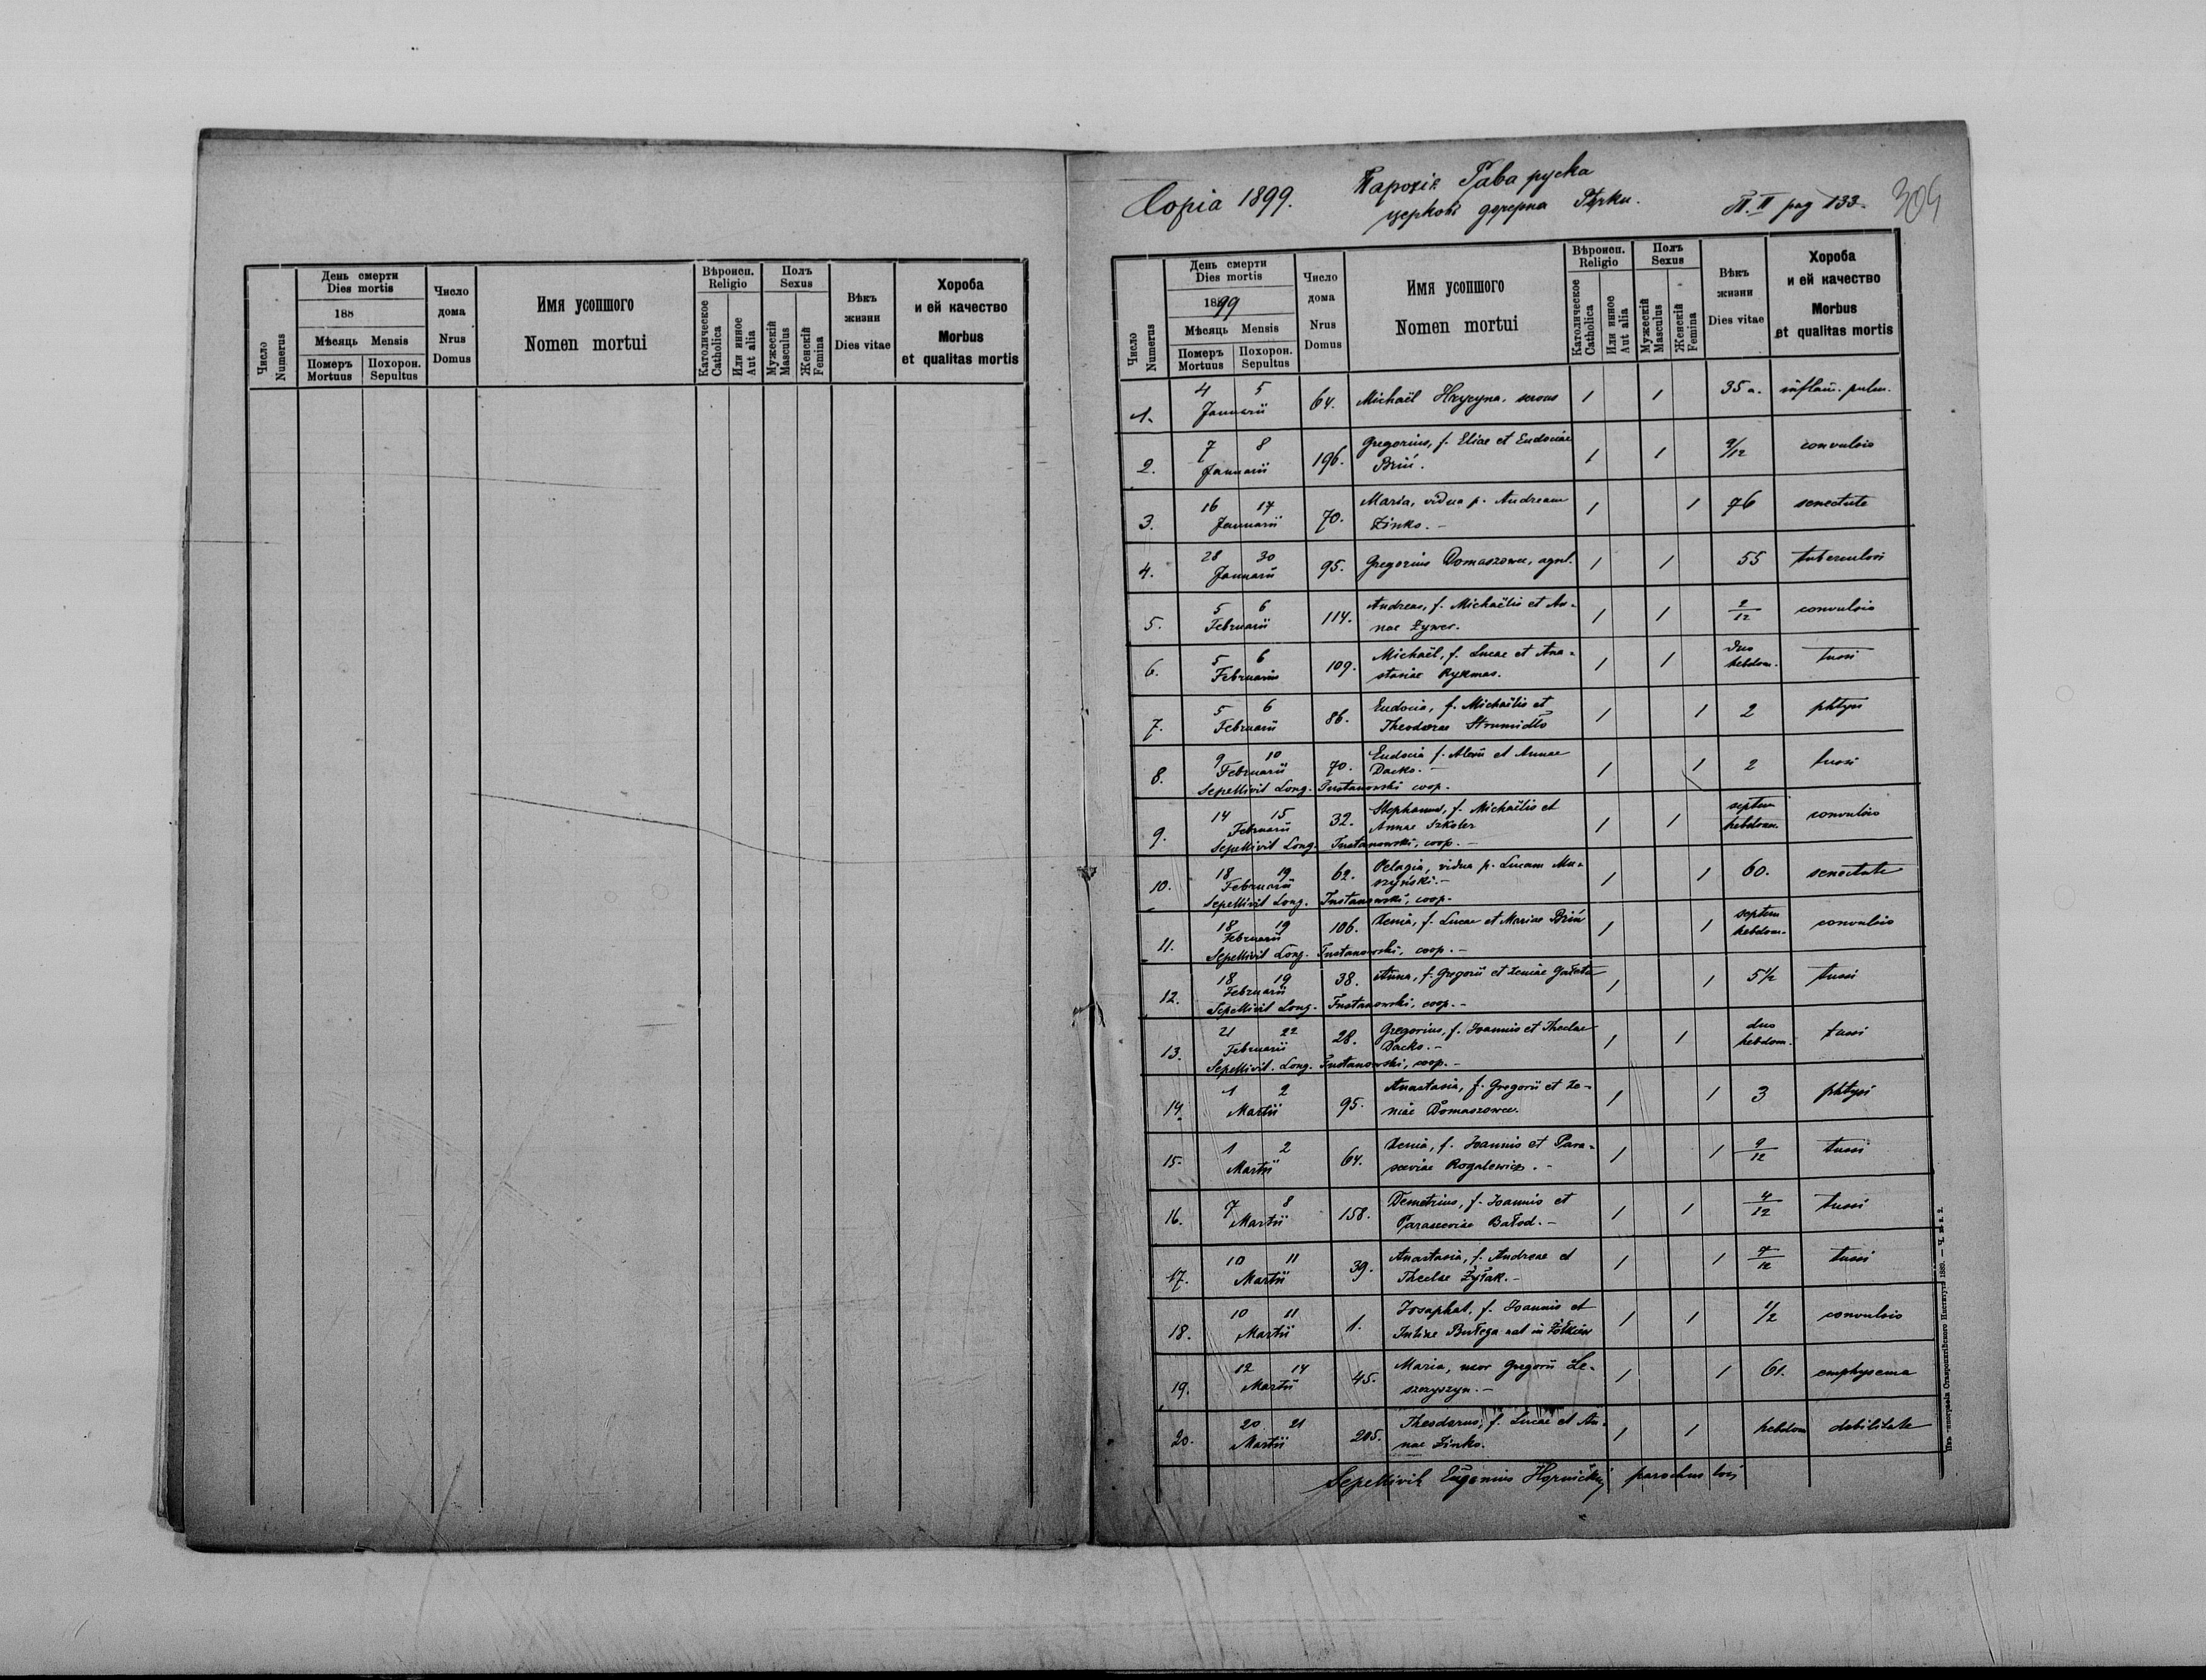 Число
Numerus
День смерти
Dies mortis
188
Мѣсяць Mensis
Померъ
Mortuus
Похорон.
Sepultus
Число
дома
Nrus
Domus
Имя усопшого
Nomen mortui
Вѣроисп.
Religio
Католическое
Catholica
Или инное
Aut alia
Полъ
Sexus
Мужескій
Masculus
Женскій
Femina
Вѣкъ
жизни
Dies vitae
Хороба
и ей качество
Morbus
et qualitas mortis
Copia 1899.
Парохія Рава руска
церковь дочерна
П. II pag 133.
304
Число
Numerus
День смерти
Dies mortis
1899
Мѣсяць Mensis
Померъ
Mortuus
Похорон.
Sepultus
Число
дома
Nrus
Domus
Имя усопшого
Nomen mortui
Вѣроисп.
Religio
Католическое
Catholica
Или инное
Aut alia
Полъ
Sexus
Мужескій
Masculus
Женскій
Femina
Вѣкъ
жизни
Dies vitae
Хороба
и ей качество
Morbus
et qualitas mortis
1. 4 5 Januarii 64. Michaël Hrycyna, 1 1 35 a. inflam. pulm.
2. 7 8 Januarii 196. Gregorius, f. Eliae et Eudociae
Briń. 1 1 9/12 convulsio
3. 16 17 Januarii 70. Maria, vidua p. Andream
Zinko. – 1 1 76 senectute
4. 28 30 Januarii 95. Gregorius Domaszowec, agricol. 1 1 55 tuberculosi
5. 5 6 Februarii 114. Andreas, f. Michaëlis et An-
nae Żywer. 1 1 2/12 convulsio
6. 5 6 Februarii 109. Michaël, f. Lucae et Ana-
stasiae Rykmas. 1 1 duo
hebdom. tussi
7. 5 6 Februarii 86. Eudocia, f. Michaëlis et
Theodorae Strumidło 1 1 2 phtysi
8. 9 10 Februarii 70. Eudocia f. Alexii et Annae
Dacko. – 1 1 2 tussi
Sepellivit Long. Tustanowski coop.
9. 14 15 Februarii 32. Stephanus, f. Michaëlis et
Annae Szkoler 1 1 septem
hebdom. convulsio
Sepellivit Long. Tustanowski, coop. –
10. 18 19 Februarii 62. Pelagia, vidua p. Lucam Mu-
szyński. – 1 1 60. senectute
Sepellivit Long. Tustanowski, coop.
11. 18 19 Februarii 106. Xenia, f. Lucae et Mariae Briń 1 1 septem
hebdom. convulsio
Sepellivit Long. Tustanowski, coop. –
12. 18 19 Februarii 38. Anna, f. Gregorii et Xeniae 1 1 5½ tussi
Sepellivit Long. Tustanowski, coop. –
13. 21 22 Februarii 28. Gregorius, f. Joannis et Theclae
Dacko. – 1 1 duo
hebdom. tussi
Sepellivit. Long. Tustanowski, coop. –
14. 1 2 Martii 95. Anastasia, f. Gregorii et Xe-
niae Domaszowec. 1 1 3 phtysi
15. 1 2 Martii 64. Xenia, f. Joannis et Para-
sceviae Rogalewicz. – 1 1 9/12 tussi
16. 7 8 Martii 158. Demetrius, f. Joannis et
Parasceviae Bałod. – 1 1 4/12 tussi
17. 10 11 Martii 39. Anastasia, f. Andreae et
Theclae Żyłak. – 1 1 7/12 tussi
18. 10 11 Martii 1. Josaphat, f. Joannis et
Juliae Bułega nat in Żółkiew 1 1 1/2 convulsio
19. 12 14 Martii 45. Maria, uxor Gregorii Le-
szczyszyn. – 1 1 61. emphysema
20. 20 21 Martii 205. Theodorus, f. Lucae et An-
nae Zinko. 1 1 hebdom debilitate
Sepellivit Eugenius Hornickij parochus loci
Изъ типографіи Ставропигійского Института 1880. — Ч. в. а. 2.